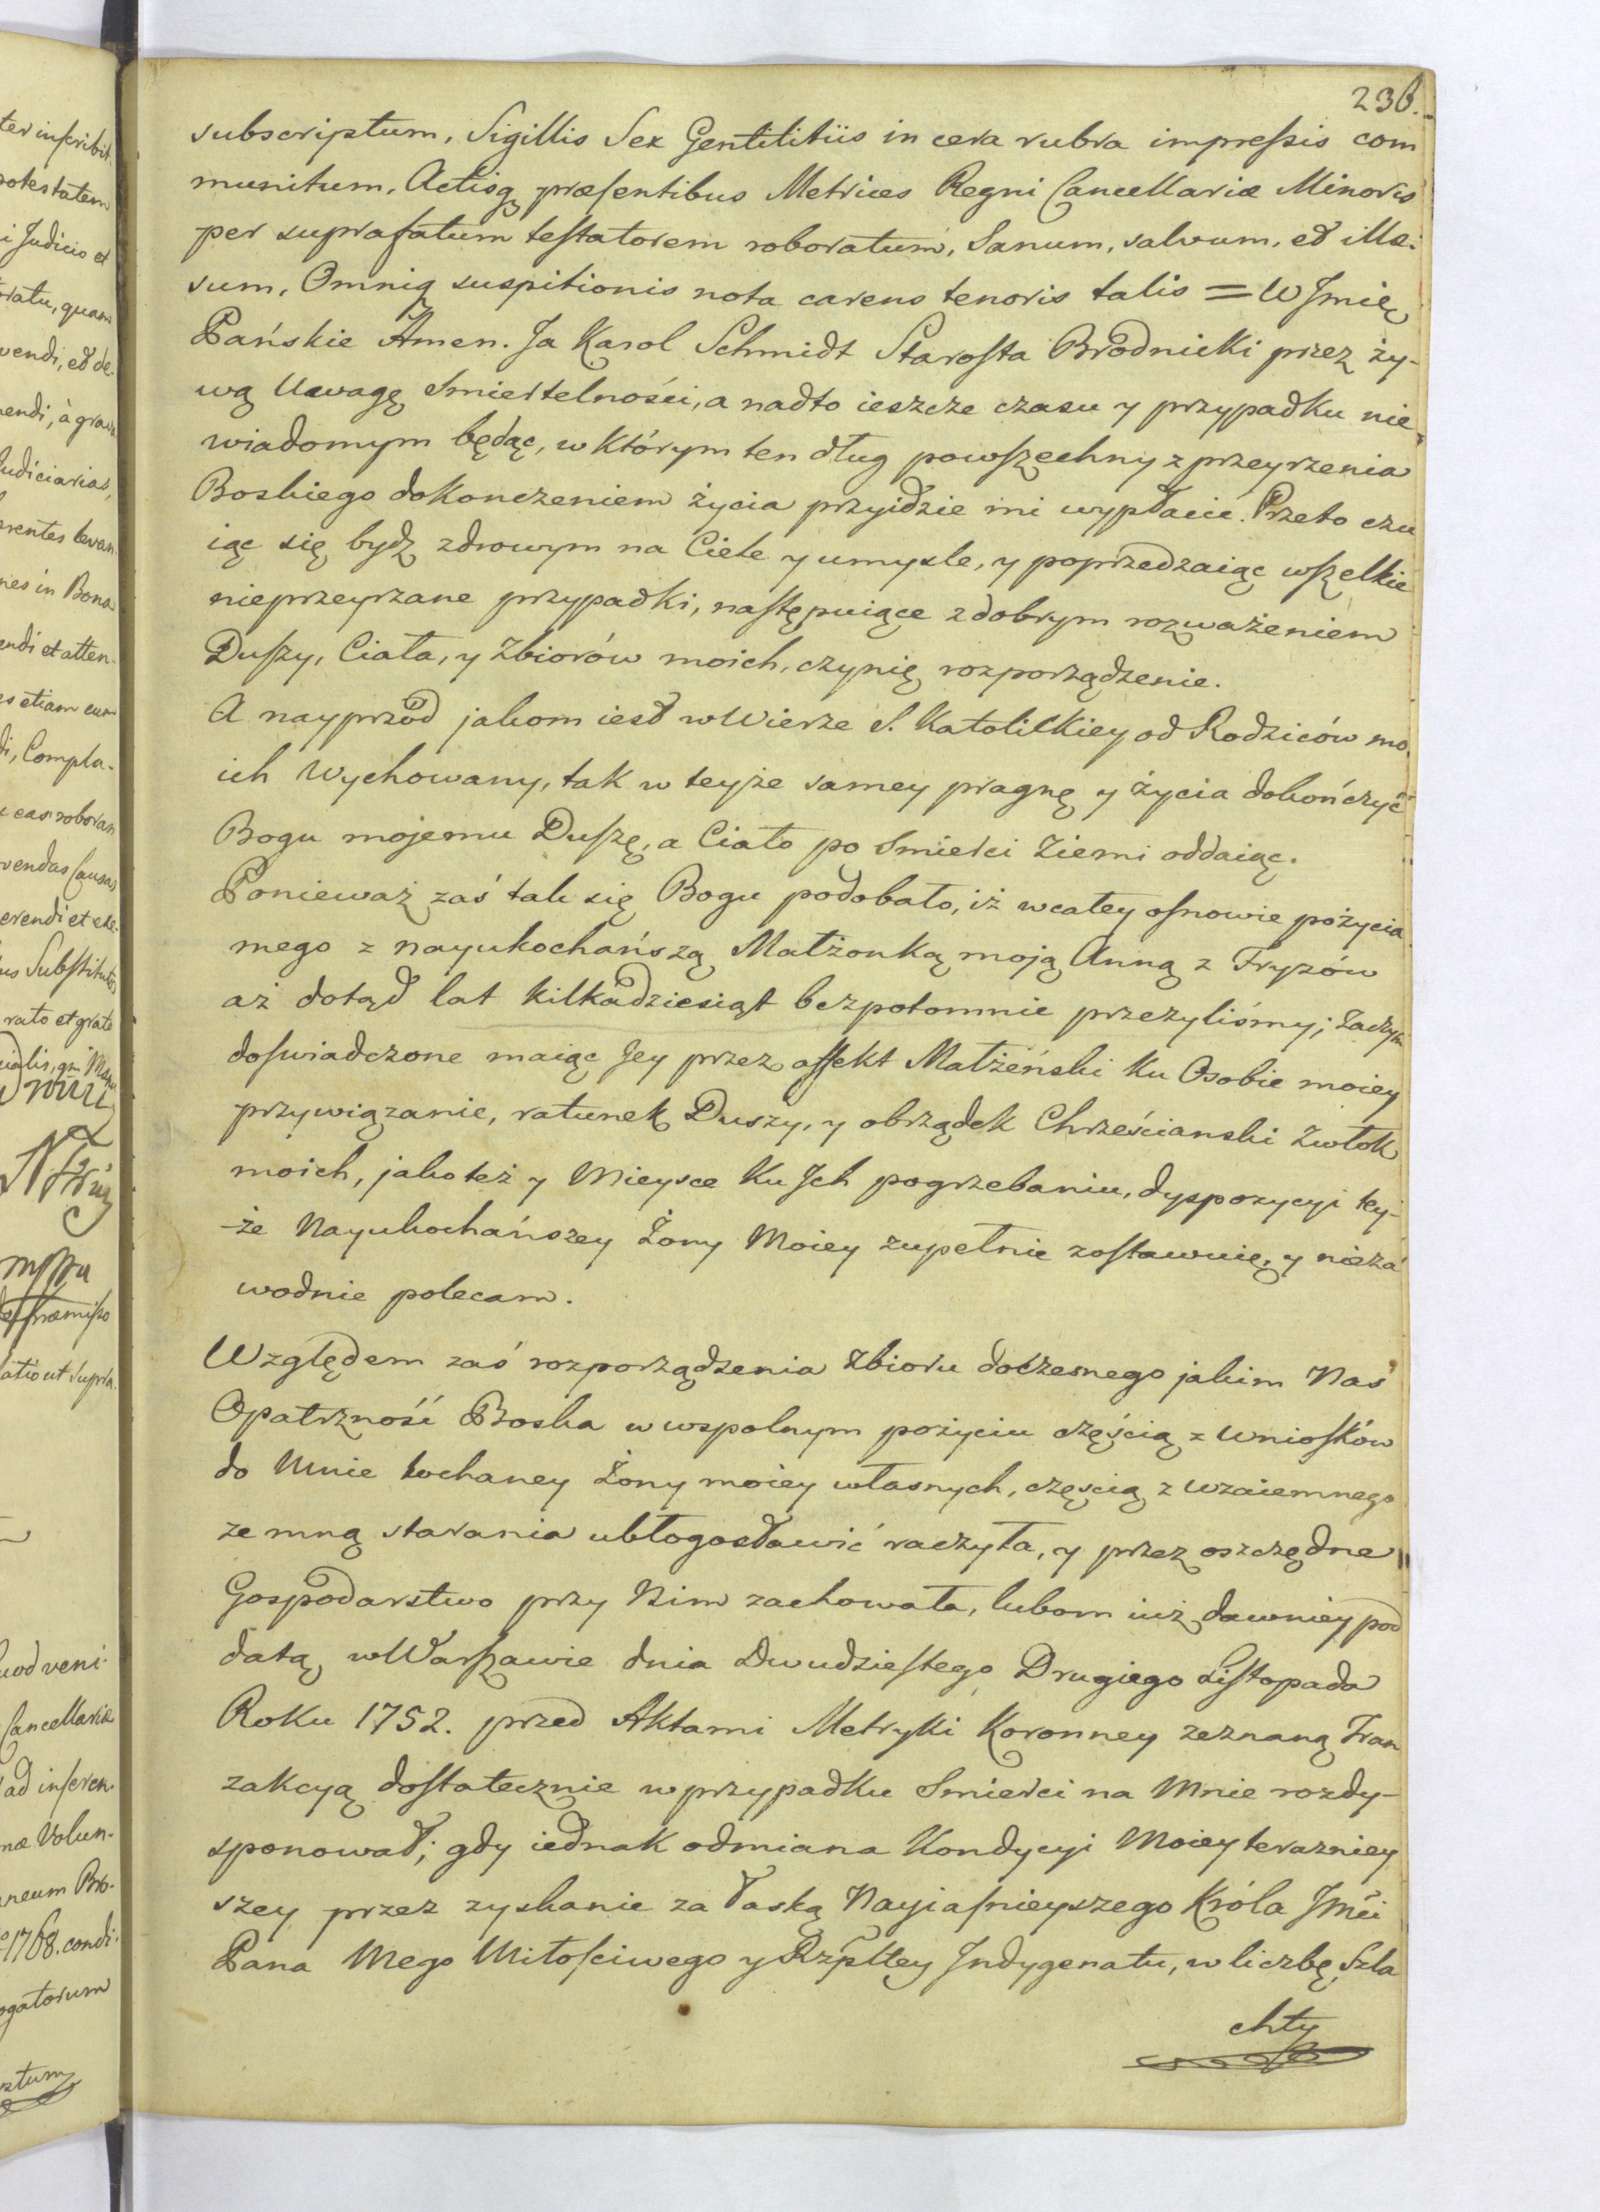 236.
subscriptum, Sigillis Sex Gentilitiis in cera rubra impressis com
munitum, Actisq præsentibus Metrices Regni Cancellariæ Minoris
per suprafatum testatorem roboratum, Sanum, salvum, et illæ-
sum, Omniq suspitionis nota carens tenoris talis = W Jmię
Pańskie Amen. Ja Karol Schmidt Starosta Brodnicki przez ży-
wą Uwagę Smiertelności, a nadto ieszcze czasu y przypadku nie
wiadomym będąc, w Którym ten dług powszechny z przeyrzenia
Boskiego dokonczeniem życia przyidzie mi wypłacic. Przeto czu
iąc się bydz zdrowym na Ciele y umysle, y poprzedzaiąc wszelkie
nieprzeyrzane przypadki, następuiące z dobrym rozważeniem
Duszy, Ciała, y Zbiorów moich, czynię rozporządzenie.
A nayprzód jakom iest w Wierze S. Katolickiey od Rodziców mo
ich Wychowany, tak w teyże samey pragnę y życia dokończyć
Bogu mojemu Duszę, a Ciało po Smierci Ziemi oddaiąc.
Ponieważ zaś tak się Bogu podobało, iż w całey osnowie pożycia
mego z nayukochańszą Małżonką moją Anną z Fryzów
aż dotąd lat kilkadziesiąt bezpotomnie przeżyliśmy; Zaczym
doswiadczone maiąc Jey przez affekt Małżeński Ku Osobie moiey
przywiązanie, ratunek Duszy, y obrządek Chrześcianski Zwłok
moich, jako też y Mieysce Ku Jch pogrzebaniu, dyspozycyi tey-
że Nayukochańszey Żony Moiey zupełnie zostawuię, y nieza
wodnie polecam.
Względem zaś rozporządzenia Zbioru doczesnego jakim Nas
Opatrzność Boska w wspolnym pożyciu częścią z Wniosków
do Mnie kochaney Żony moiey własnych, częścią z wzaiemnego
ze mną starania ubłogosławić raczyła, y przez oszczędne
Gospodarstwo przy Nim zachowała, lubom iuż dawniey pod
datą w Warszawie dnia Dwudziestego Drugiego Listopada
Roku 1752. przed Aktami Metryki Koronney zeznaną Tran
zakcyą dostatecznie w przypadku Smierci na Mnie rozdy-
sponował; gdy iednak odmiana Kondycyi Moiey terazniey
szey przez zyskanie za łaską Nayiasnieyszego Króla Jmći
Pana Mego Miłościwego y Rzpltey Jndygenatu, w liczbę Szla
chty